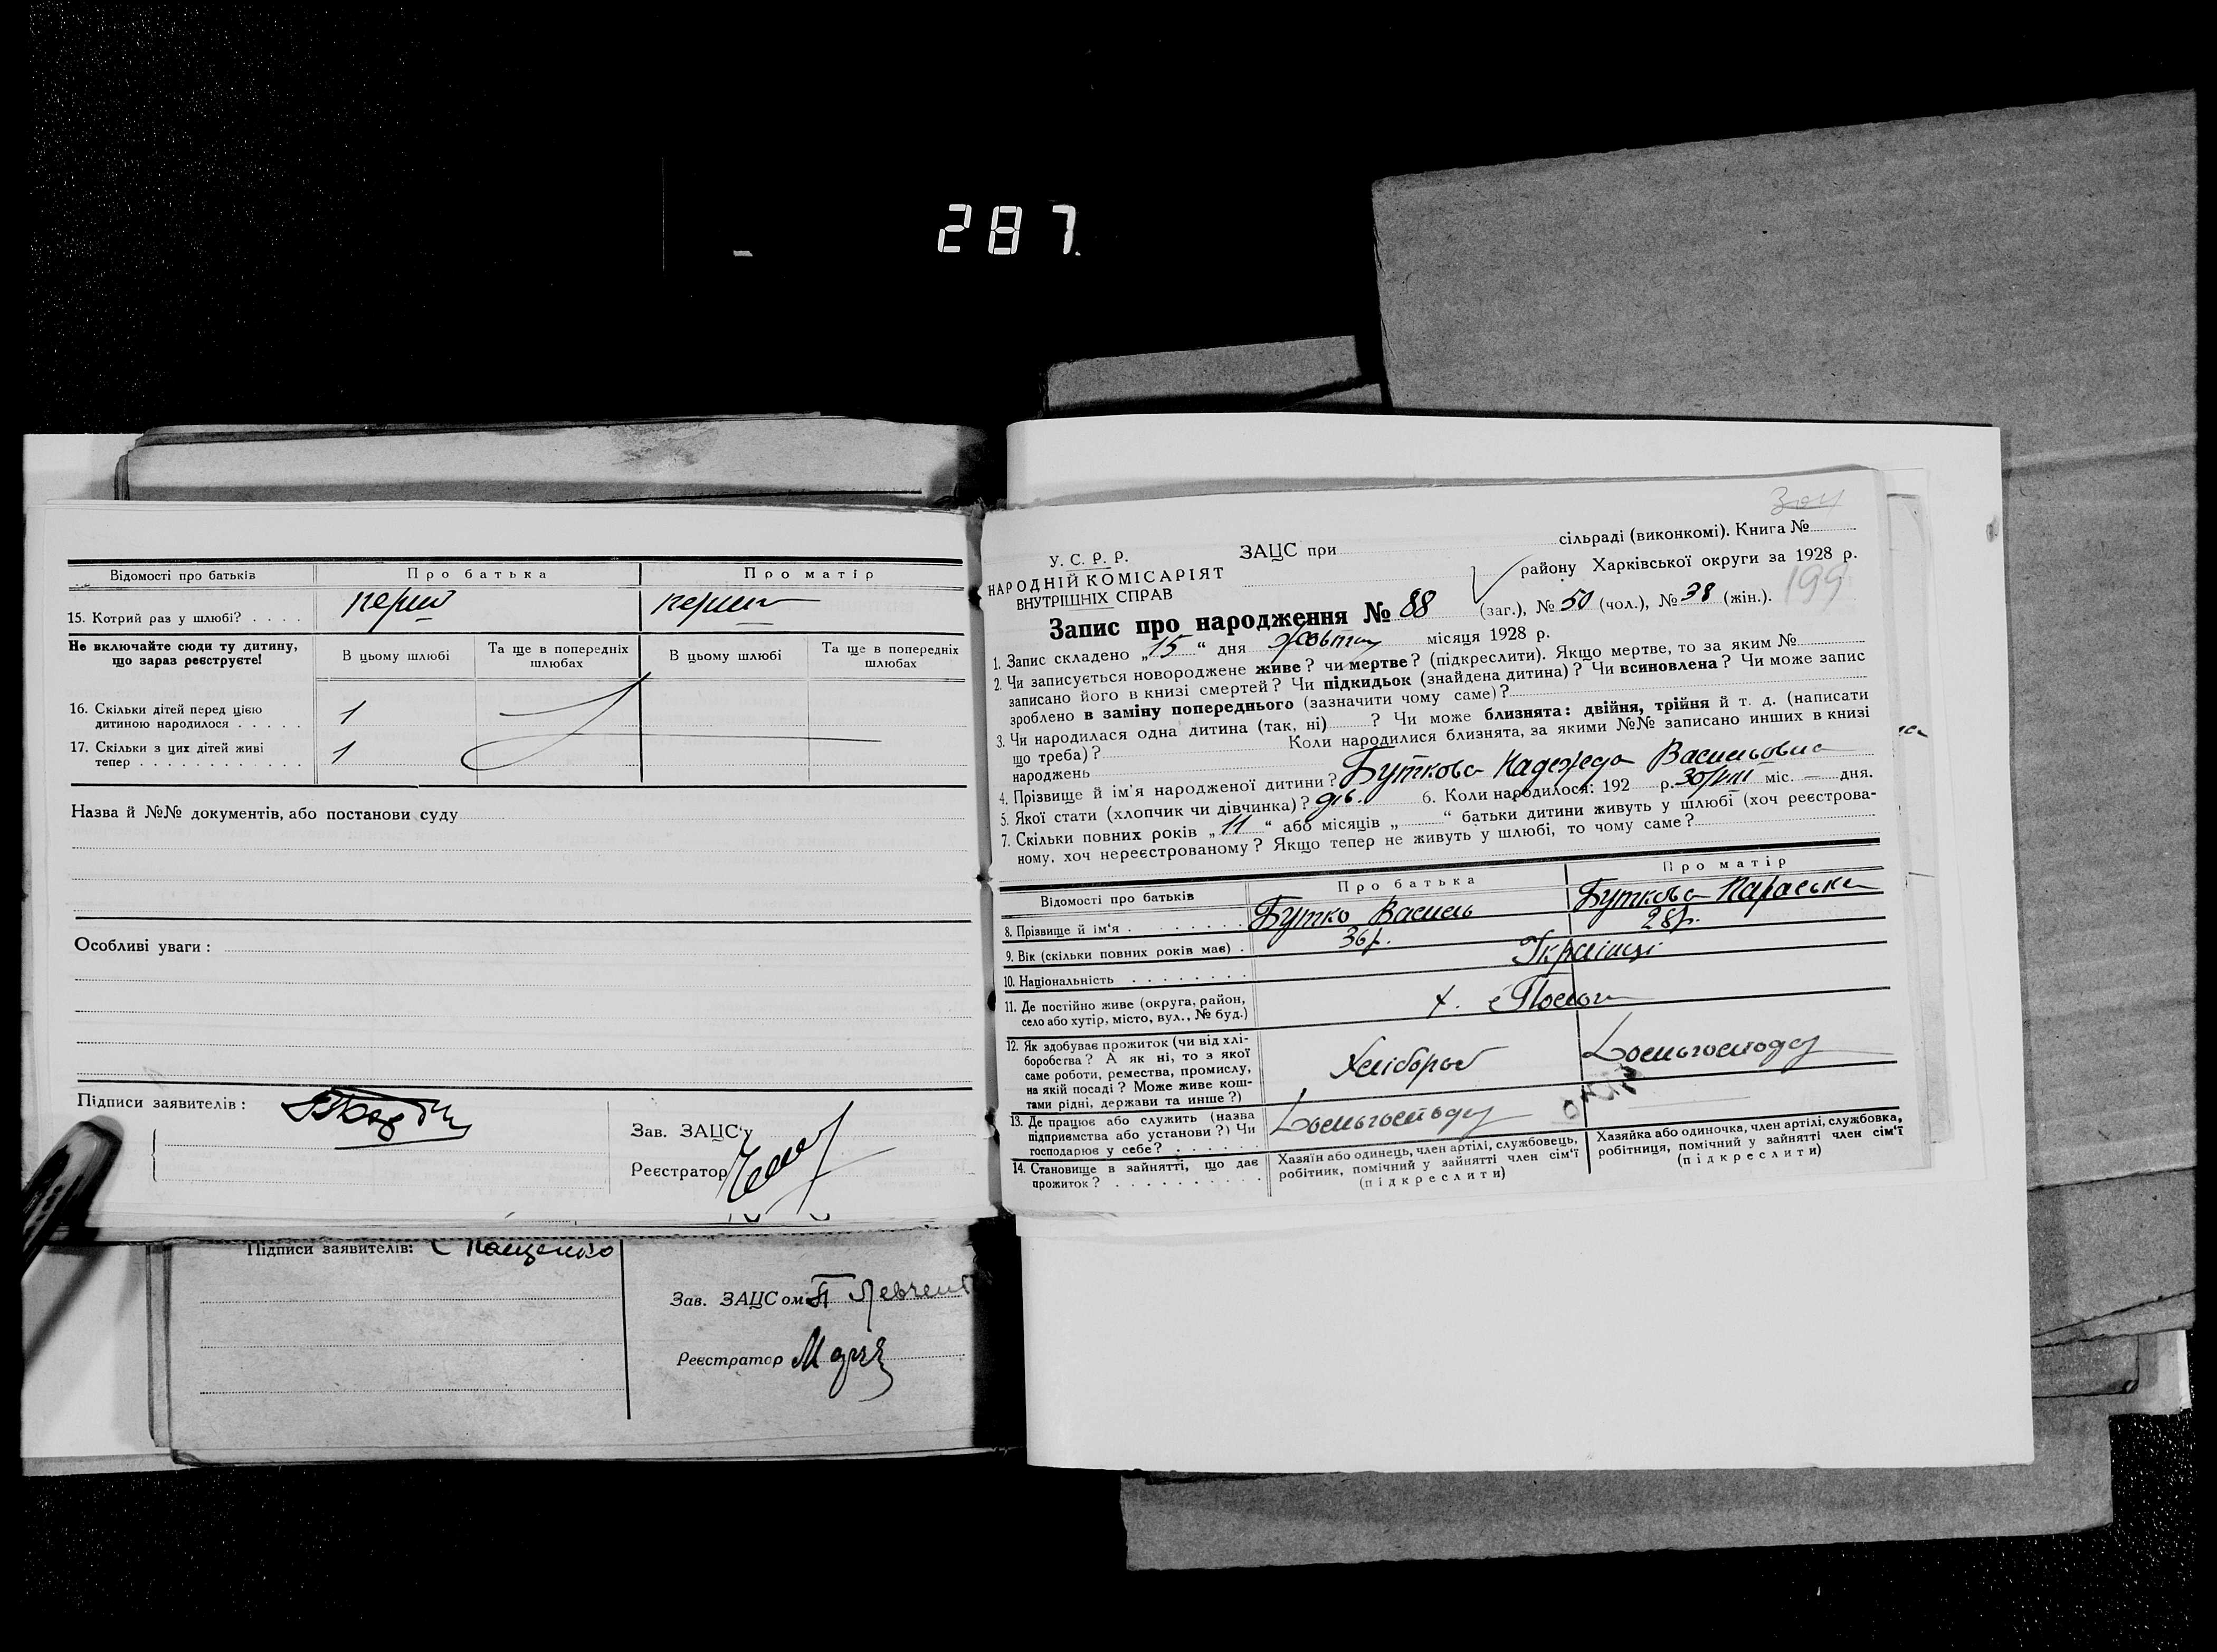 287.
Відомості про батьків Про батька Про матір
15. Котрий раз у шлюбі? . . . . перш перший
Не включайте сюди ту дитину, що зараз реєструєте!
В цьому шлюбі Та ще в попередніх шлюбах В цьому шлюбі Та ще в попередніх шлюбах
16. Скільки дітей перед цією
дитиною народилося . . . . . 1
17. Скільки з цих дітей живі
тепер . . . . . . . . . . . . 1
Назва й №№ документів, або постанови суду
Особливі уваги:
Підписи заявителів:
Зав. ЗАЦС'у
Реєстратор
Підписи заявителів: Пащенко
Зав. ЗАЦСом П Левчен
Реєстратор
У. С. Р. Р.
НАРОДНІЙ КОМІСАРІЯТ
ВНУТРІШНІХ СПРАВ
ЗАЦС при сільраді (виконкомі). Книга №
району Харківської округи за 1928 р.
199
Запис про народження № 88 (заг.), № 50 (чол.), № 38 (жін.).
1. Запис складено „15“ дня жовтня місяця 1928 р.
2. Чи записується новороджене живе? чи мертве? (підкреслити). Якщо мертве, то за яким №
записано його в книзі смертей? Чи підкидьок (знайдена дитина)? Чи всиновлена? Чи може запис
зроблено в заміну попереднього (зазначити чому саме)?
3. Чи народилася одна дитина (так, ні) ? Чи може близнята: двійня, трійня й т. д. (написати
що треба)? Коли народилися близнята, за якими №№ записано инших в книзі
народжень
4. Прізвище й ім'я народженої дитини? Буткова Надежда Васильовна
5. Якої стати (хлопчик чи дівчинка)? дів. 6. Коли народилося: 192 р. 30/VIII міс. — дня.
7. Скільки повних років „11“ або місяців „ “ батьки дитини живуть у шлюбі (хоч реєстрова-
ному, хоч нереєстрованому? Якщо тепер не живуть у шлюбі, то чому саме?
Відомості про батьків Про батька Про матір
8. Прізвище й ім'я . . . . . . . . Бутко Василь Буткова Параська
9. Вік (скільки повних років має) . 36 р. 28 р.
10. Національність . . . . . . . Українці
11. Де постійно живе (округа, район,
село або хутір, місто, вул., № буд.) х.
12. Як здобуває прожиток (чи від хлі-
боробства? А як ні, то з якої
саме роботи, ремества, промислу,
на якій посаді? Може живе кош-
тами рідні, держави та инше?) Хлібороб
13. Де працює або служить (назва
підприємства або установи?) Чи
господарює у себе? . . . . .
14. Становище в зайнятті, що дає
прожиток? . . . . . . . . . .
Хазяїн або одинець, член артілі, службовець,
робітник, помічний у зайнятті член сім'ї
(підкреслити)
Хазяйка або одиночка, член артілі, службовка,
робітниця, помічний у зайнятті член сім'ї
(підкреслити)